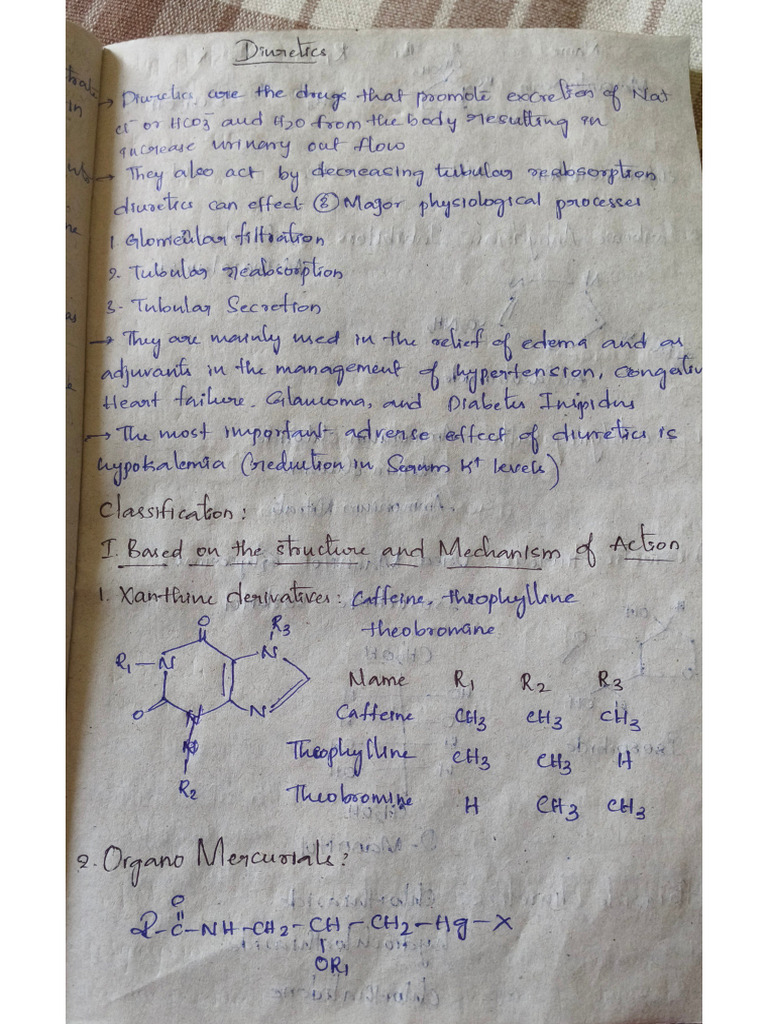 Diuretics
→ Diuretics are the drugs that promote excretion of Na+
cl- or HCO3- and H2O from the body resulting in
increase urinary out flow
→ They also act by decreasing tubular reabsorption
diuretics can effect ③ Major physiological processes
1. Glomerular filtration
2. Tubular reabsorption
3. Tubular Secretion
→ They are mainly used in the relief of edema and as
adjuvants in the management of hypertension, congestiv
Heart failure. Glaucoma, and Diabetes Inipidus
→ The most important adverse effect of diuretics is
hypokalemia (reduction in Serum K+ levels)
Classification:
I. Based on the structure and Mechanism of Action
1. Xanthine derivatives: Caffeine, theophylline
theobromine
O R3
R1-N N
O N N
R2
Name R1 R2 R3
Caffeine CH3 CH3 CH3
Theophylline CH3 CH3 H
Theobromine H CH3 CH3
2. Organo Mercurials:
O
R-C-NH-CH2-CH-CH2-Hg-X
OR1